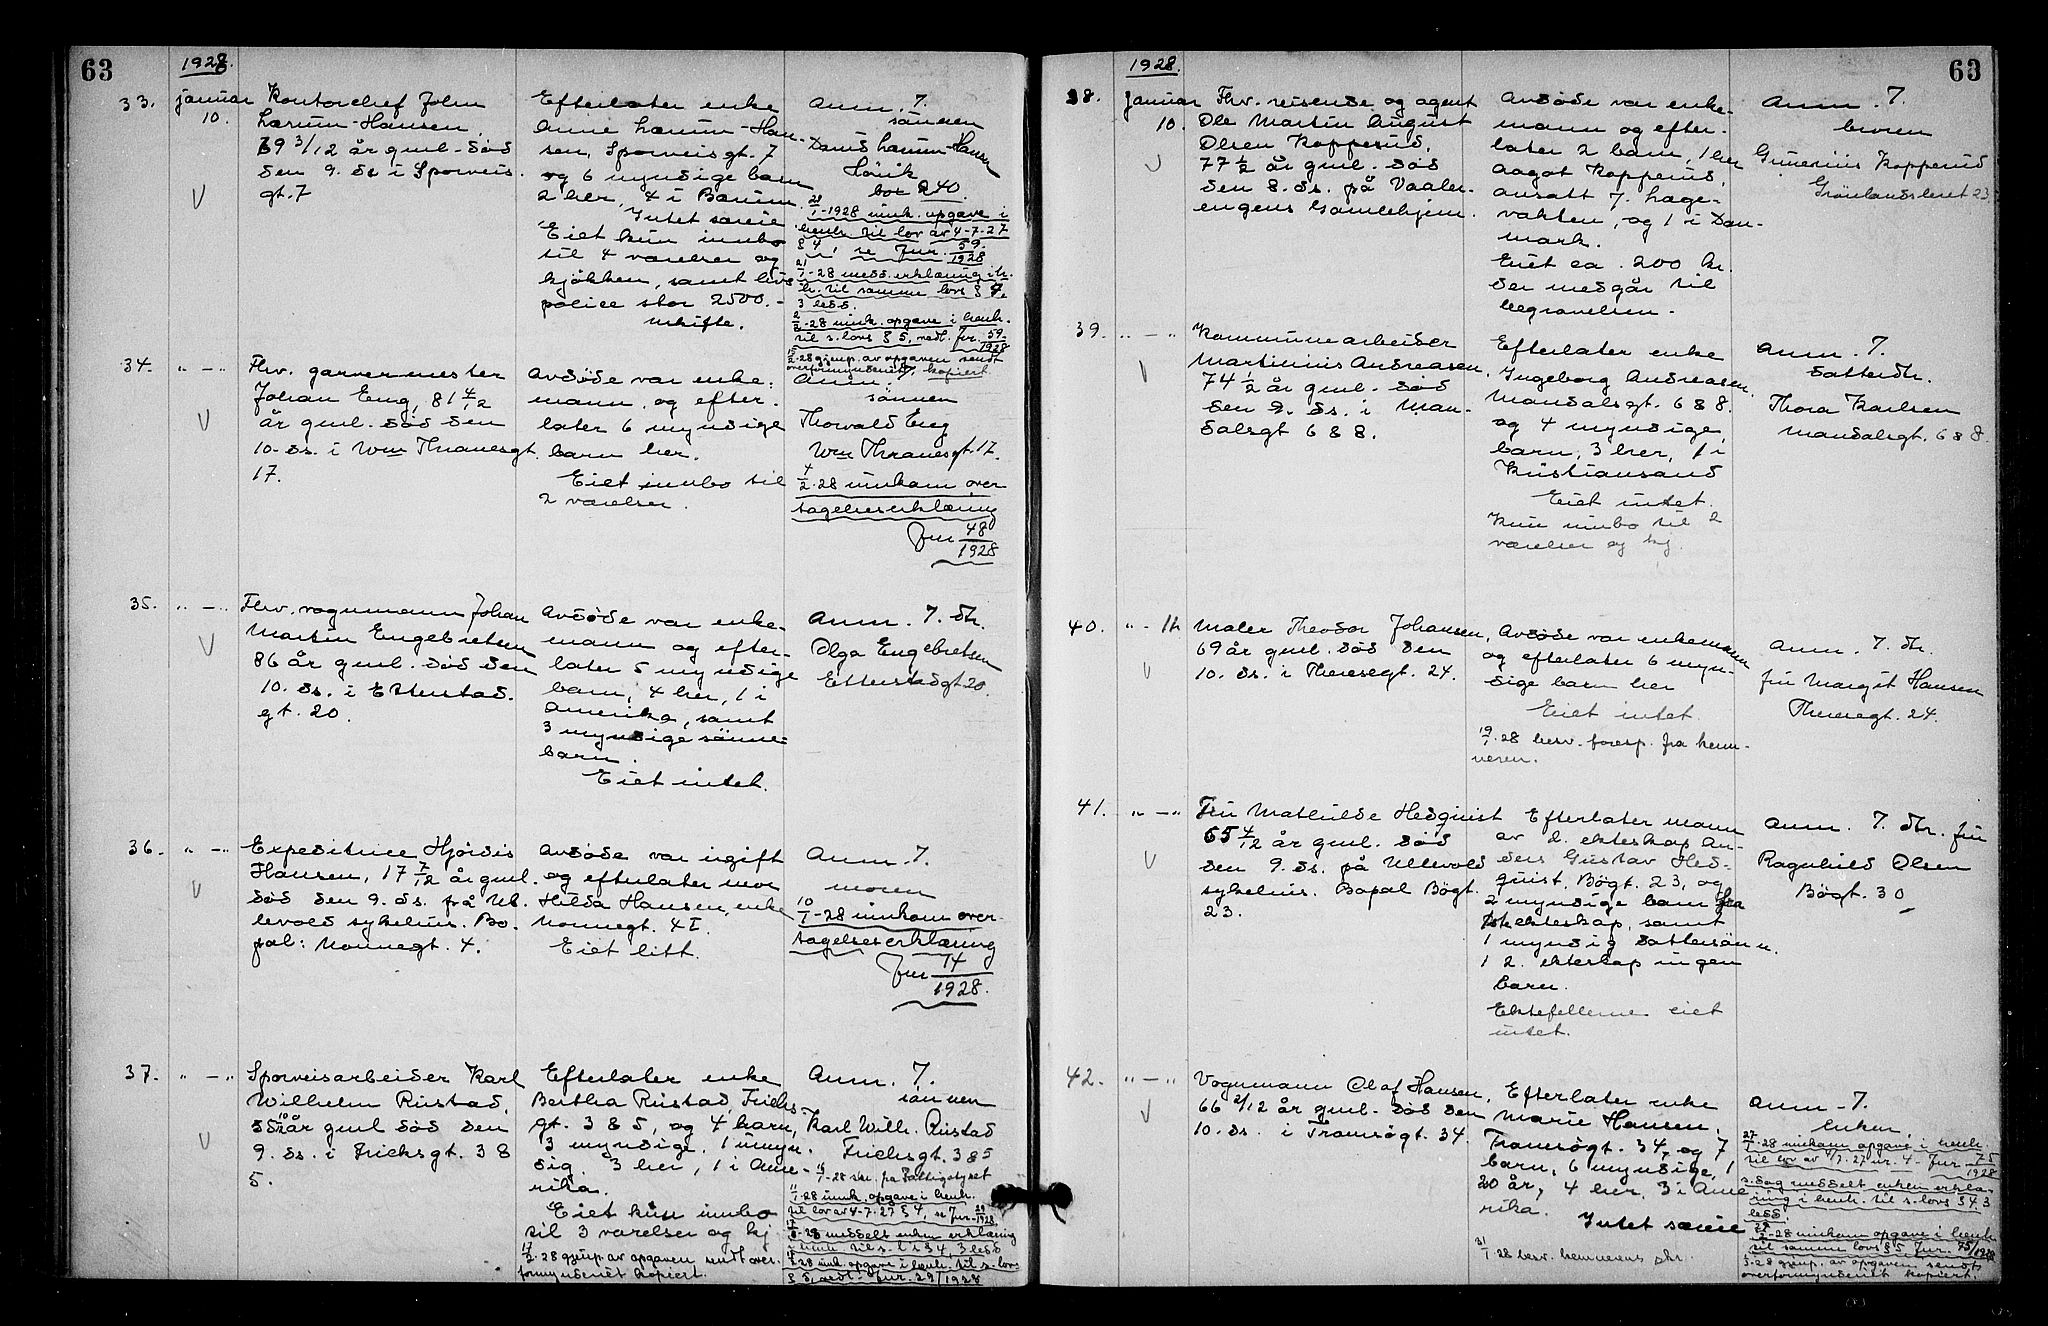 63
1928.
33.
januar
10.
Kontorchef John
Larum-Hansen,
69 3/12 år gml. død
den 9. ds i Sporveis.
gt. 7
Efterlater enke
Anne Larum-Han-
sen, Sporveisgt. 7
og 6 myndige barn
2 her, 4 i Bærum.
Intet særeie
Eiet kun innbo
til 4 værelser og
kjøkken, samt livs
police stor 2500.-
Uskifte.
Anm. 7.
sønnen
Larum-Hansen
Høvik
box 240
28/1-1928 innk. opgave i
henh. til lov av 4-7-27
§ 4, se Jnr. 59/1928
21/1-28 medd. erklæring i h.
h. til samme lovs § 4,
3 ledd
2/2-28 innk. opgave i henh.
til s. lovs § 5, nedl. Jnr. 59/1928
2-28 gjenp. av opgaven sendt
overformynderiet, kopiert.
34.
" - "
Fhv. garvermester
Johan Eng, 81 4/12
år gml. død den
10. ds. i Wm Thranesgt.
17.
Avdøde var enke-
mann, og efter-
later 6 myndige
barn her.
Eiet innbo til
2 værelser.
Anm:
sønnen
Thorvald Eng
Wm Thranesgt. 17.
4/2-28 innkom over
tagelseserklæring
Jnr 48/1928
35.
" - "
Fhv. vognmann Johan
Martin Engebretsen
86 år gml. død den
10. ds. i Etterstad.
gt. 20.
Avdøde var enke-
mann og efter-
later 5 myndige
barn, 4 her, 1 i
Amerika, samt
3 myndige sønne-
barn.
Eiet intet.
Anm. 7. dtr.
Olga Engebretsen
Etterstadgt 20.
36.
" - "
Expeditrice Hjørdis
Hansen, 17 7/12 år gml.
død den 9. ds. på Ul.
levold sykehus. Bo.
pæl: Nonnegt. 4.
Avdøde var ugift
og efterlater mor
Hilda Hansen, enke
Nonnegt. 4 I.
Eiet litt.
Anm. 7.
moren
10/1-28 innkom over-
tagelseserklæring
Jnr 14/1928.
37.
" - "
Sporveisarbeider Karl
Wilhelm Rustad,
år gml død den
9. ds. i Frichsgt. 3 8
5.
Efterlater enke
Bertha Rustad, Frichs-
gt. 3 8 5, og 4 barn,
3 myndige, 1 umyn.
dig, 3 her, 1 i Ame-
rika.
Eiet kun innbo
til 3 værelser og kj
17/2-28 gjenp. av opgaven sendt over.
formynderiet kopiert.
Anm. 7.
sønnen
Karl Wilh. Rustad
Frichsgt. 3 8 5
1-28 skr. fra Fattigstyret
11/1-28 innk. opgave i henh.
til lov av 4-7-27 § 4, se Jnr. 29/1928
-28 meddelt enken erklæring
i henh. til s. l. s § 4, 3 ledd
-28 innk. opgave i henh. til s. lovs
§ 5, nedl. Jnr. 29/1928
63
1928.
38.
Januar
10.
Fhv. reisende og agent
Ole Martin August
Olsen Kopperud,
77 1/2 år gml. død
den 8. ds. på Vaaler-
engens Gamlehjem.
Avdøde var enke-
mann og efter-
later 2 barn, 1 her
Aagot Kopperud,
ansatt 7. hage-
vakten, og 1 i Dan-
mark.
Eiet ca. 200 kr.
der medgår til
begravelsen.
Anm. 7.
broren
Gunerius Kopperud
Grønlandsleret 23.
39.
" - "
Kommunearbeider
Martinius Andreasen,
74 1/2 år gml. død
den 9. ds. i Man-
dalsgt 6 8 8.
Efterlater enke
Ingeborg Andreasen,
Mandalsgt. 6 8 8.
og 4 myndige,
barn, 3 her, 1 i
Kristiansand
Eiet intet.
Kun innbo til 2
værelser og kj.
Anm. 7.
datterdtr.
Thora Karlsen
Mandalsgt. 6 8 8.
40.
" - 11.
Maler Theodor Johansen,
69 år gml. død den
10. ds. i Theresegt. 24.
Avdøde var enkemann
og efterlater 6 myn-
dige barn her
Eiet intet.
19/1-28 besv. foresp. fra kemn-
neren.
Anm. 7. dtr.
fru Margit Hansen
Theresegt. 24.
41.
" - "
Fru Mathilde Hedquist
65 4/12 år gml. død
den 9. ds. på Ullevold
sykehus. Bopæl Bøgt.
23.
Efterlater mann
av 2. ekteskap An-
ders Gustav Hed-
quist, Bøgt. 23, og
2 myndige barn fra
1st ekteskap, samt
1 myndig dattersønn.
I 2. ekteskap ingen
barn.
Ektefellerne eiet
intet.
Anm. 7. dtr. fru
Ragnhild Olsen
Bøgt. 30
42.
" - "
Vognmann Olaf Hansen,
66 2/12 år gml. død den
10. ds. i Tromsøgt. 34.
Efterlater enke
Marie Hansen,
Tromsøgt. 34, og 7
barn, 6 myndige, 1
20 år, 4 her, 3 i Ame
rika.
Intet særeie
31/1-28 besv. kemnerens skr.
Anm. 7.
enken.
27/1-28 innkom opgave i henh.
til lov av 4/7-27 nr. 4 - Jnr. 75/1928
s. dag meddelt enken erklæ-
ring i henh. til s. lovs § 4 3
ledd.
28/2-28 innkom opgave i henh
til samme lovs § 5 Jnr. 75/1928
3-28 gjenp. av opgaven sendt
overformynderiet kopiert.